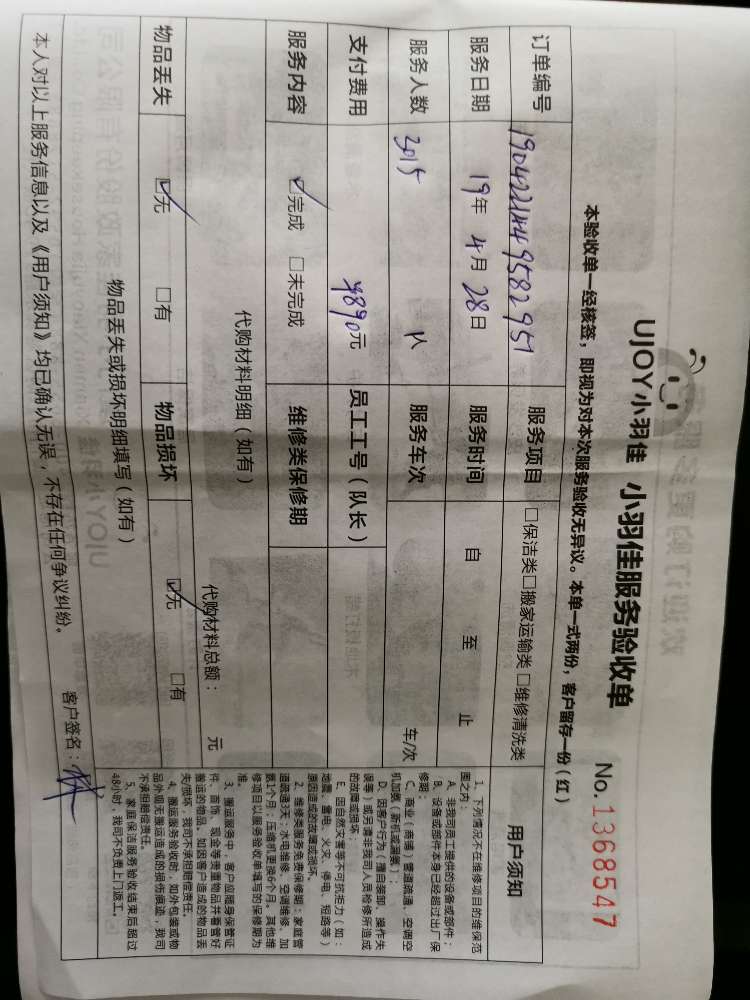 UJOY小羽佳 小羽佳服务验收单
No.1368547
本验收单一经核签，即视为对本次服务验收无异议。本单一式两份，客户留存一份（红）
订单编号 服务项目 □保洁类□搬家运输类 □维修清洗类
服务日期 19年 4月 28日 服务时间 自 至 止
服务人数 人 服务车次 车/次
支付费用 元 员工工号（队长）
服务内容 ☑完成 □未完成 维修类保修期
代购材料明细（如有）
代购材料总额： 元
物品丢失 ☑无 □有 物品损坏 ☑无 □有
物品丢失或损坏明细填写（如有）
本人对以上服务信息以及《用户须知》均已确认无误，不存在任何争议纠纷。
客户签名：
用户须知
1、下列情况不在维修项目的维保范
围之内：
A、非我司员工提供的设备或部件；
B、设备或部件本身已经超过出厂保
修期；
C、商业（商铺）管道疏通、空调空
机加氨（新机或漏氨）；
D、因客户行为（擅自装卸、操作失
误等）或另请非我司人员检修所造成
的故障或损坏；
E、因自然灾害等不可抗拒力（如：
地震、雷电、火灾、停电、短路等）
原因造成的故障或损坏。
2、维修类服务免费保修期：家庭管
道疏通3天；水电维修、空调维修、加
氨1个月；压缩机更换6个月。其他维
修项目以服务验收单填写的保修期为
准。
3、搬运服务中，客户应随身保管证
件、首饰、现金等贵重物品并看管好
搬运的物品。如因客户造成的物品丢
失/损坏，我司不承担赔偿责任。
4、搬运服务验收时，如外包装或物
品外观无搬运造成的损伤痕迹，我司
不承担赔偿责任。
5、家庭保洁服务验收结束后超过
48小时，我司不负责上门返工。